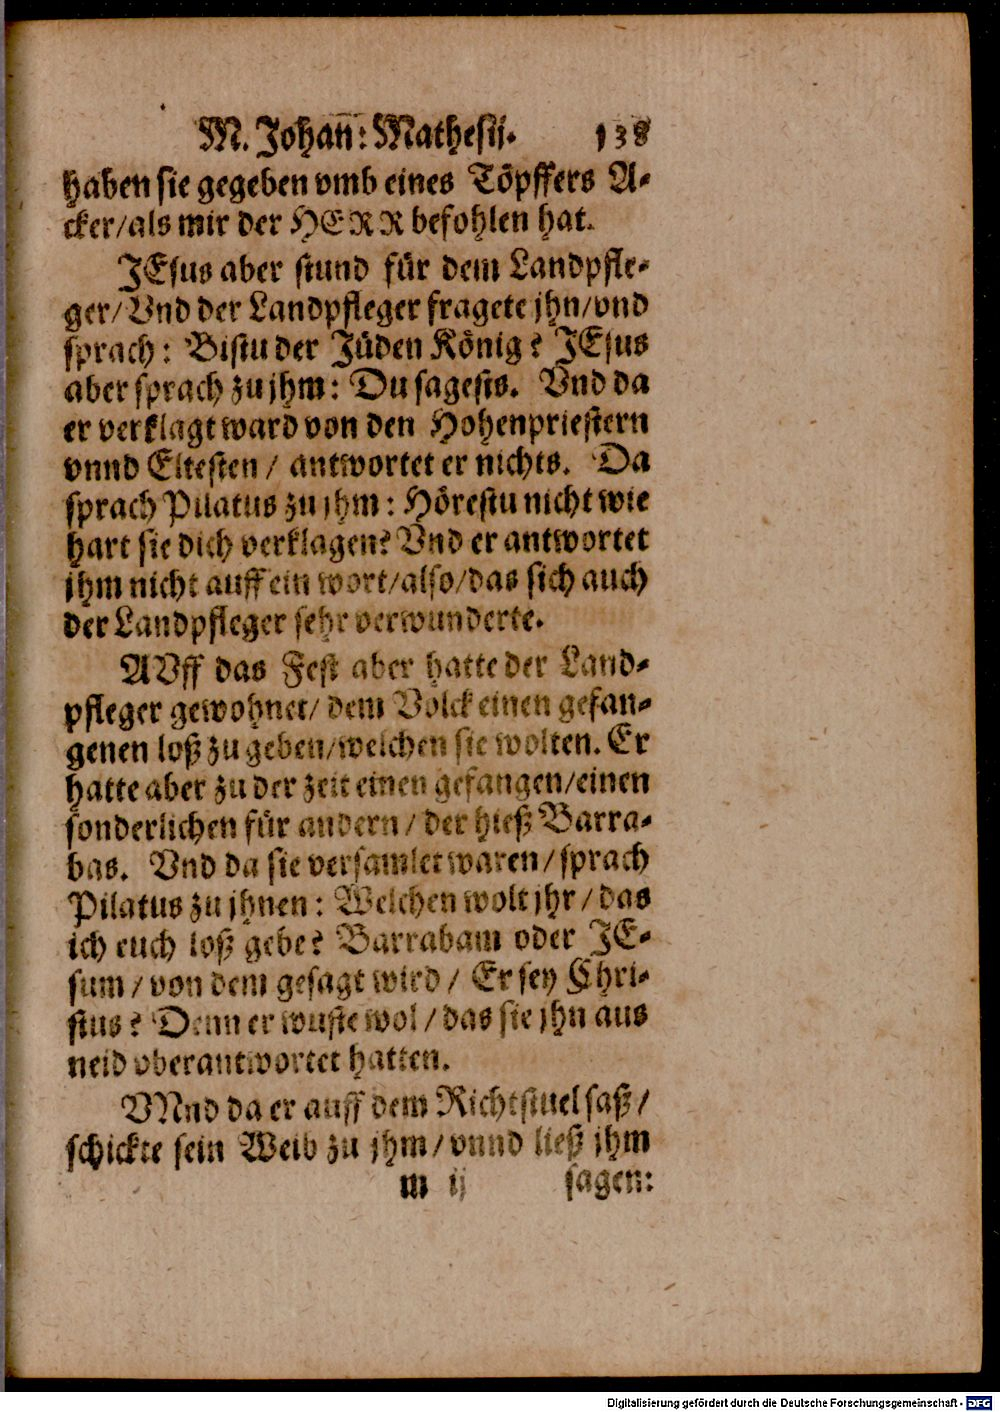 M. Johañ: Mathesij. 138
haben sie gegeben vmb eines Töpffers A-
cker/als mir der HERR befohlen hat.
JEsus aber stund für dem Landpfle-
ger/Vnd der Landpfleger fragete jhn/vnd
sprach: Bistu der Jüden König? JEsus
aber sprach zu jhm: Du sagests. Vnd da
er verklagt ward von den Hohenpriestern
vnnd Eltesten / antwortet er nichts. Da
sprach Pilatus zu jhm: Hörestu nicht wie
hart sie dich verklagen? Vnd er antwortet
jhm nicht auff ein wort/also/das sich auch
der Landpfleger sehr verwunderte.
AVff das Fest aber hatte der Land-
pfleger gewohnet/ dem Volck einen gefan-
genen loß zu geben/welchen sie wolten. Er
hatte aber zu der zeit einen gefangen/einen
sonderlichen für andern / der hieß Barra-
bas. Vnd da sie versamlet waren/sprach
Pilatus zu jhnen: Welchen wolt jhr / das
ich euch loß gebe? Barrabam oder JE-
sum / von dem gesagt wird / Er sey Chri-
stus? Denn er wuste wol / das sie jhn aus
neid vberantwortet hatten.
VNnd da er auff dem Richtstuel saß/
schickte sein Weib zu jhm/vnnd ließ jhm
m ij sagen:
Digitalisierung gefördert durch die Deutsche Forschungsgemeinschaft - DFG